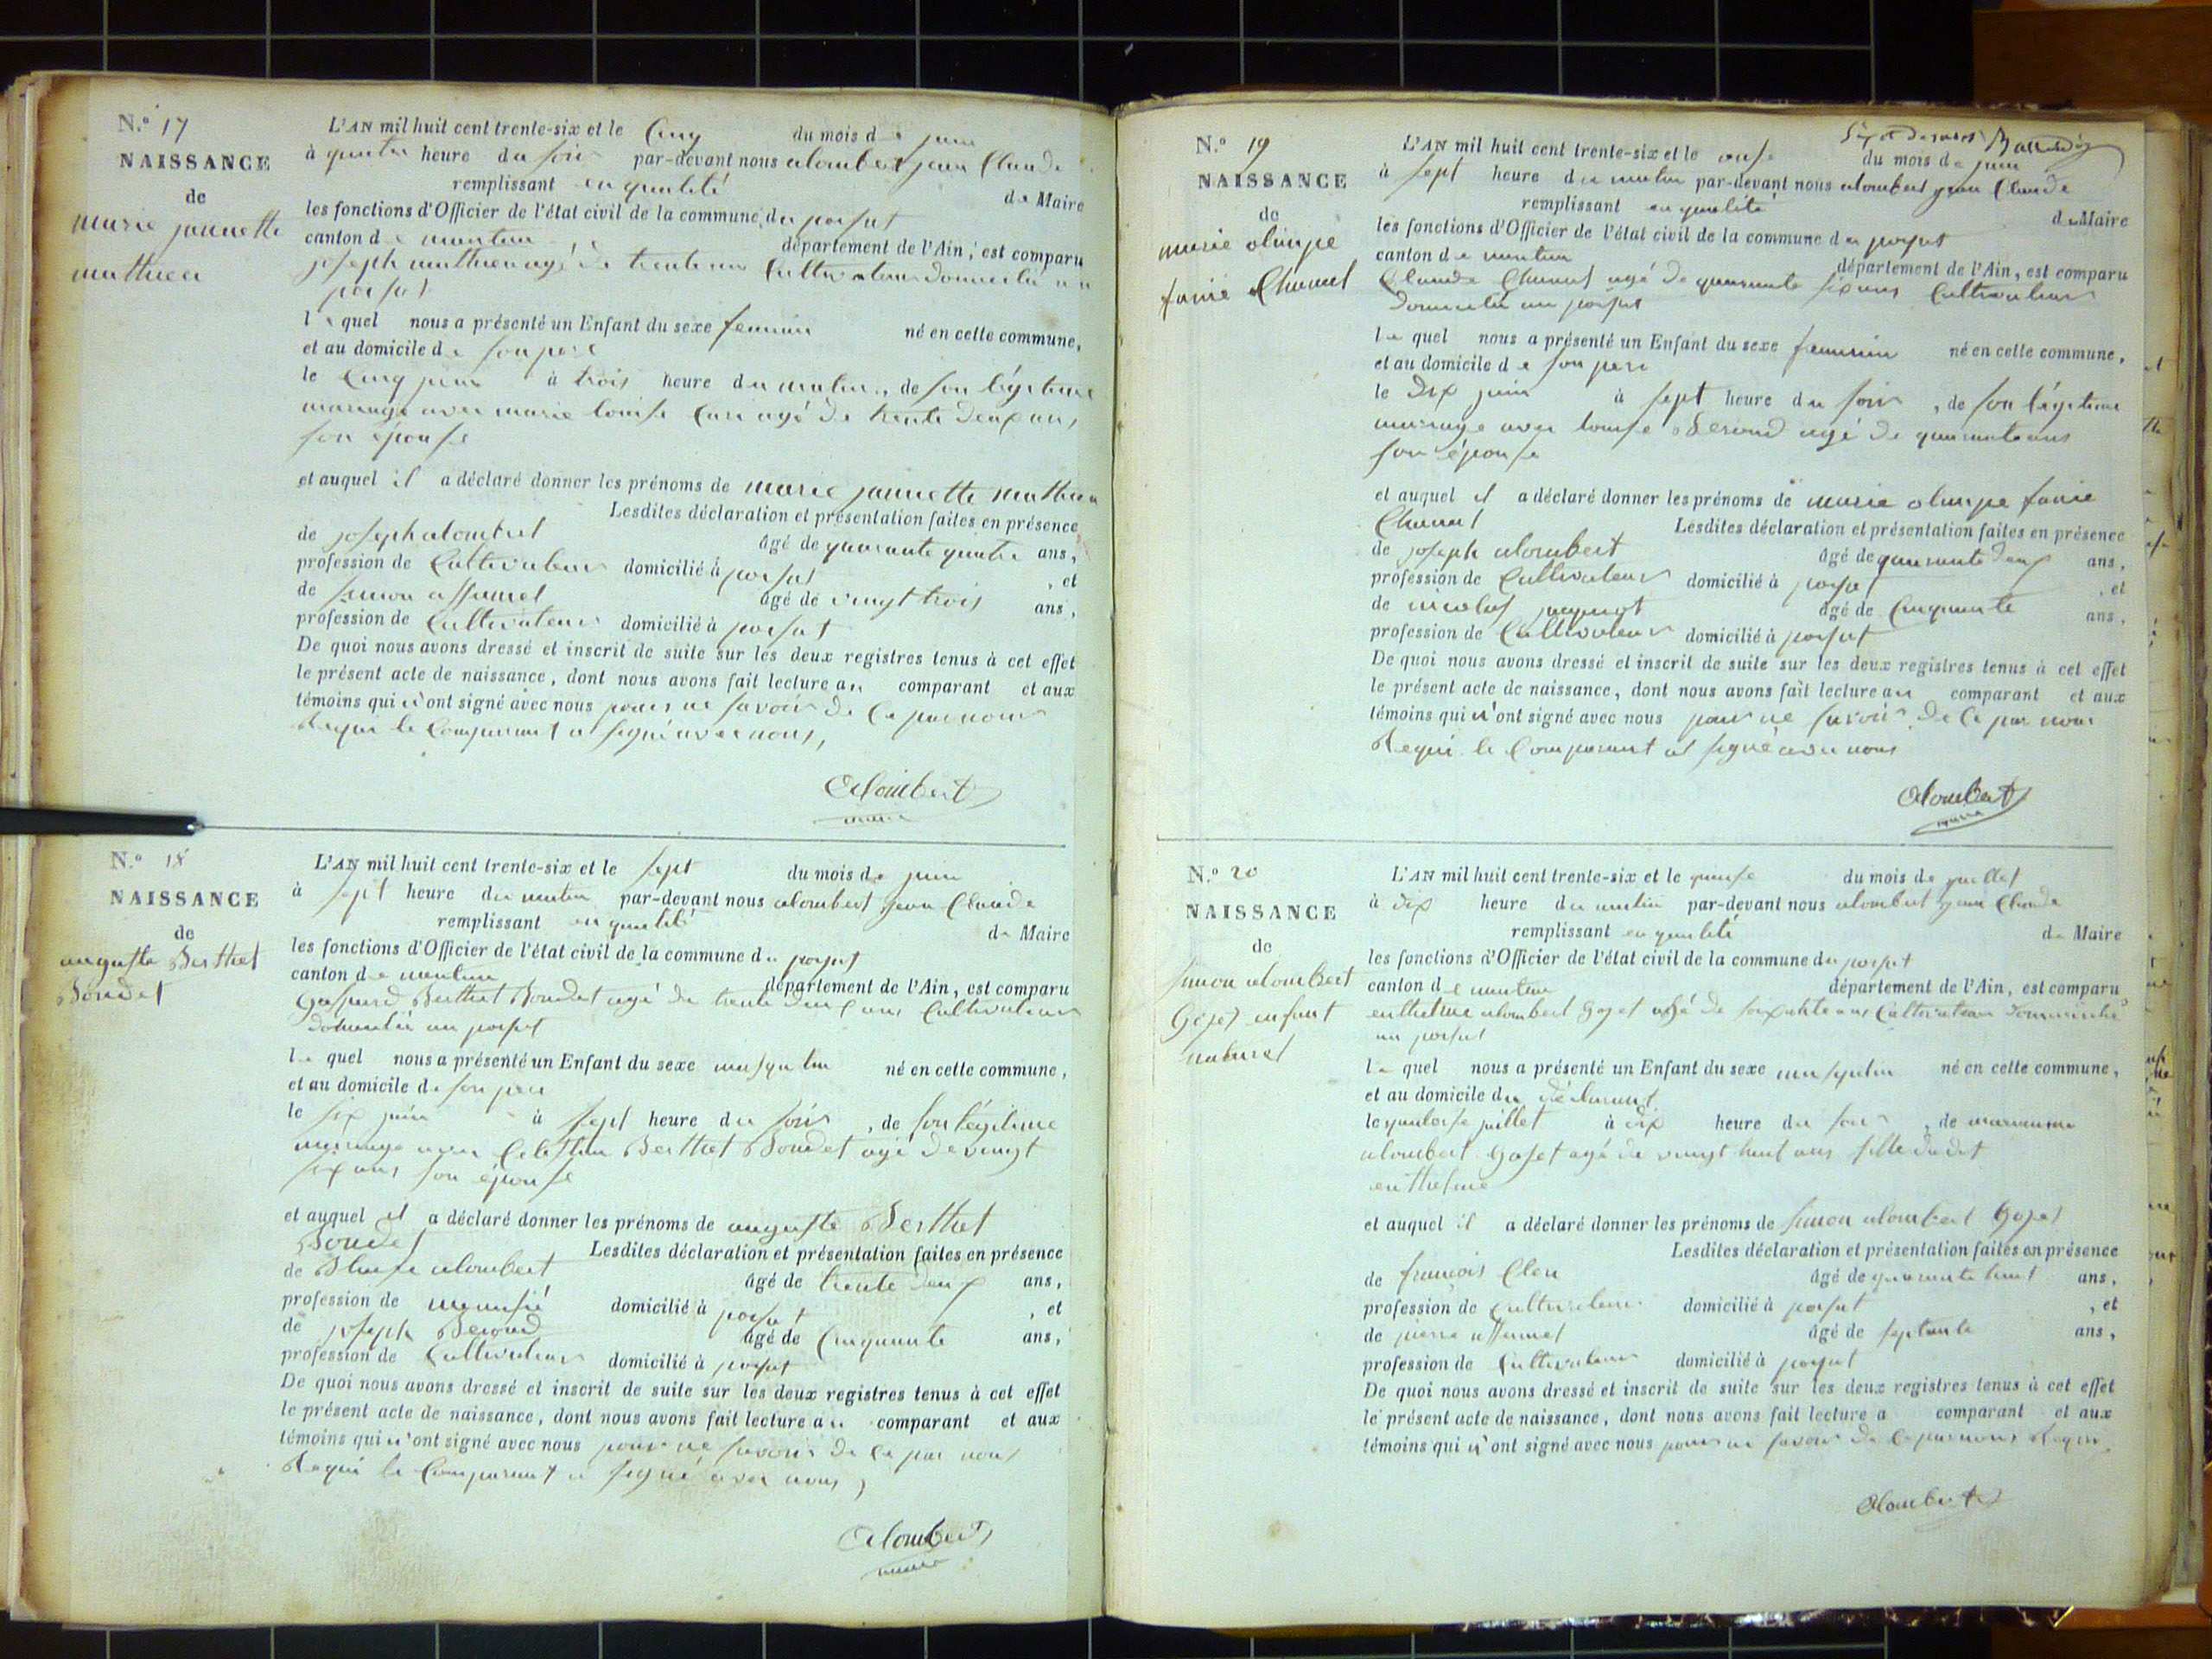 N.o 17
NAISSANCE
de
marie jannette
mathieu
L'AN mil huit cent trente-six et le Cinq du mois de juin
à quatre heure du soir par-devant nous alombert jean Claude
remplissant en qualité de Maire
les fonctions d'Officier de l'état civil de la commune du
canton de département de l'Ain, est comparu
joseph mathieu agé de trente Cultivateur domicilié au
le quel nous a présenté un Enfant du sexe feminin né en cette commune,
et au domicile de son pere
le Cinq juin à trois heure du matin, de son légitime
mariage avec marie louise agé de trente deux ans
son épouse
et auquel il a déclaré donner les prénoms de marie jannette mathieu
Lesdites déclaration et présentation faites en présence
de joseph alombert âgé de quarante quatre ans,
profession de Cultivateur domicilié à , et
de simon affamel âgé de vingt trois ans,
profession de Cultivateur domicilié à
De quoi nous avons dressé et inscrit de suite sur les deux registres tenus à cet effet
le présent acte de naissance, dont nous avons fait lecture au comparant et aux
témoins qui n'ont signé avec nous pour ne savoir de ce par nous
Requi le Comparant a signé avec nous,
Alombert
maire
N.o 18
NAISSANCE
de
auguste Berthet
Bondet
L'AN mil huit cent trente-six et le sept du mois de juin
à sept heure du matin par-devant nous alombert jean Claude
remplissant en qualité de Maire
les fonctions d'Officier de l'état civil de la commune du
canton de département de l'Ain, est comparu
Gaspard Berthet Bondet agé de trente deux ans Cultivateur
domicilié au
le quel nous a présenté un Enfant du sexe masqulin né en cette commune,
et au domicile de son pere
le six juin à sept heure du soir, de son légitime
mariage avec Celestine Berthet Bondet agé de vingt
six ans son épouse
et auquel il a déclaré donner les prénoms de auguste Berthet
Bondet Lesdites déclaration et présentation faites en présence
de alombert âgé de trente deux ans,
profession de menusié domicilié à , et
de joseph Beroud âgé de Cinquante ans,
profession de Cultivateur domicilié à
De quoi nous avons dressé et inscrit de suite sur les deux registres tenus à cet effet
le présent acte de naissance, dont nous avons fait lecture au comparant et aux
témoins qui n'ont signé avec nous pour ne savoir de ce par nous
Requi le Comparant a signé avec nous,
Alombert
maire
N.o 19
NAISSANCE
de
marie olimpe
fanie Chanel
L'AN mil huit cent trente-six et le onse du mois de juin
à sept heure du matin par-devant nous alombert jean Claude
remplissant en qualité de Maire
les fonctions d'Officier de l'état civil de la commune du
canton de département de l'Ain, est comparu
Claude agé de quarante six ans Cultivateur
domicilié au
le quel nous a présenté un Enfant du sexe feminin né en cette commune,
et au domicile de son pere
le Dix juin à sept heure du soir, de son légitime
mariage avec louise Beroud agé de quarante ans
son épouse
et auquel il a déclaré donner les prénoms de marie olimpe fanie
Lesdites déclaration et présentation faites en présence
de joseph alombert âgé de quarante deux ans,
profession de Cultivateur domicilié à , et
de nicolas âgé de Cinquante ans,
profession de Cultivateur domicilié à
De quoi nous avons dressé et inscrit de suite sur les deux registres tenus à cet effet
le présent acte de naissance, dont nous avons fait lecture au comparant et aux
témoins qui n'ont signé avec nous pour ne savoir de ce par nous
Requi le Comparant a signé avec nous
Alombert
maire
N.o 20
NAISSANCE
de
simon alombert
Goget enfant
naturel
L'AN mil huit cent trente-six et le quinse du mois de juillet
à dix heure du matin par-devant nous alombert jean Claude
remplissant en qualité de Maire
les fonctions d'Officier de l'état civil de la commune du
canton de département de l'Ain, est comparu
enthelme alombert Goget agé de soixante ans Cultivateur domicilié
au
le quel nous a présenté un Enfant du sexe masqulin né en cette commune,
et au domicile du déclarant
le quatorse juillet à dix heure du soir, de
alombert Goget agé de vingt huit ans fille dudit
enthelme
et auquel il a déclaré donner les prénoms de simon alombert Goget
Lesdites déclaration et présentation faites en présence
de françois âgé de quarante huit ans,
profession de Cultivateur domicilié à , et
de pierre affamel âgé de septante ans,
profession de Cultivateur domicilié à
De quoi nous avons dressé et inscrit de suite sur les deux registres tenus à cet effet
le présent acte de naissance, dont nous avons fait lecture a comparant et aux
témoins qui n'ont signé avec nous pour ne savoir de ce par nous Requi
Alombert